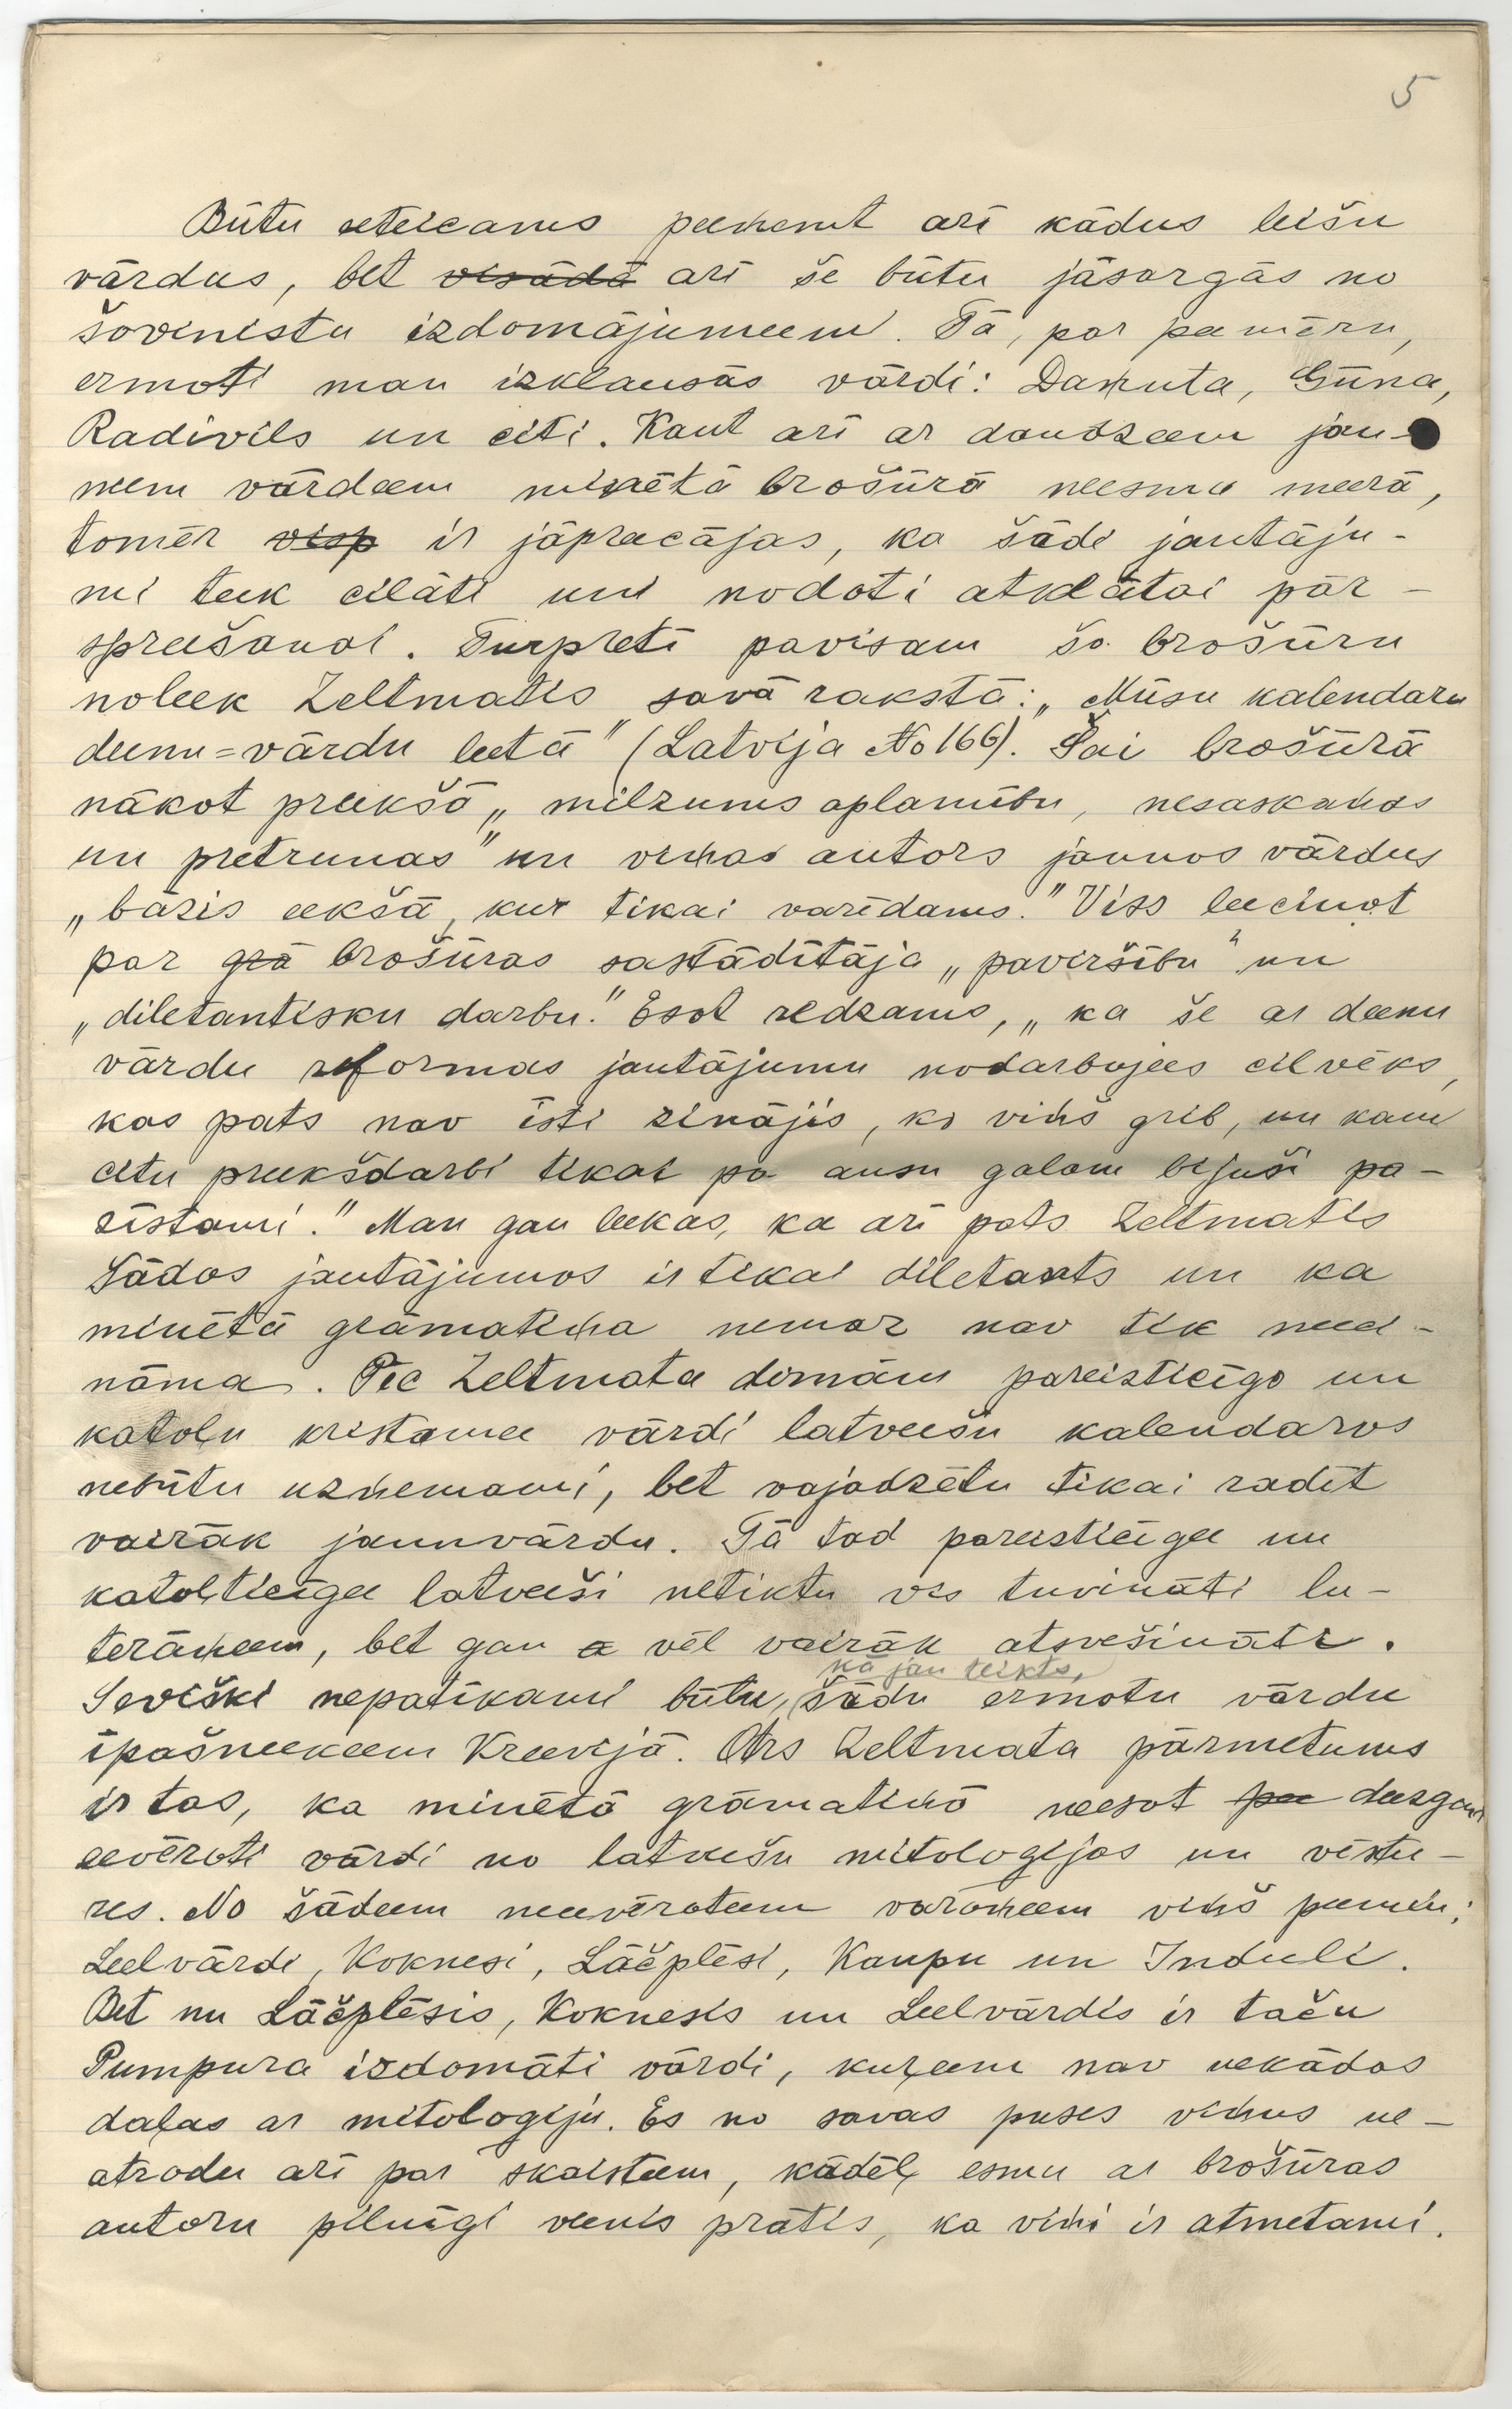 5
Būtu eeteicams peeņemt arī kādus leišu
vārdus, bet visādā arī še būtu jāsargās no
šovinistu izdomājumeem. Tā, par peemēru,
ermoti man izklausās vārdi: Daņuta, Gūna,
Radivils un citi. Kaut arī ar daudzeem jau-
neem vārdeem minētā brošūrā neesmu meerā,
tomēr visp ir jāpreecājas, ka šādi jautāju-
mi teek cilāti un nodoti atklātai pār-
spreešanai. Turpretī pavisam šo brošūru
noleek Zeltmatis savā rakstā: „Mūsu kalendaru
deenu=vārdu leetā" (Latvija No 166). Šai brošūrā
nākot preekšā „milzums aplamību, nesaskaņas
un pretrunas" un viņas autors jaunos vārdus
„bāzis eekšā, kur tikai varēdams." Viss leecinot
par grā brošūras sastādītāja „paviršību" un
„diletantisku darbu." Esot redzams, „ka še ar deenu
vārdu reformas jautājumu nodarbojees cilvēks,
kas pats nav īsti zinājis, ko viņš grib, un kam
citu preekšdarbi tikai pa ausu galam bijuši pa-
zīstami." Man gan leekas, ka arī pats Zeltmatis
šādos jautājumos ir tikai diletants un ka
minētā grāmatiņa nemaz nav tik need-
nāma. Pēc Zeltmata domām pareizticīgo un
katoļu kristamee vārdi latveešu kalendaros
nebūtu uzņemami, bet vajadzētu tikai radīt
vairāk jaunvārdu. Tā tad pareizticīgee un
katoļticīgee latveeši netiktu vis tuvināti lu-
terāņeem, bet gan a vēl vairāk atsvešināti.
kā jau teikts,
Sevišķi nepatīkami būtu, šādu ermotu vārdu
īpašneekeem Kreevijā. Otrs Zeltmata pārmetums
ir tas, ka minētā grāmatiņā neesot pee deezgan
eevēroti vārdi no latveešu mitologijas un vēstu-
res. No šādeem neeevēroteem varoņeem viņš peemin:
Leelvārdi, Koknesi, Lāčplēsi, Kaupu un Induli.
Bet nu Lāčplēsis, Koknesis un Leelvārdis ir taču
Pumpura izdomāti vārdi, kuŗeem nav nekādas
daļas ar mitologiju. Es no savas puses viņus ne-
atrodu arī par skaisteem, kādēļ esmu ar brošūras
autoru pilnīgi veenis prātis, ka viņi ir atmetami.